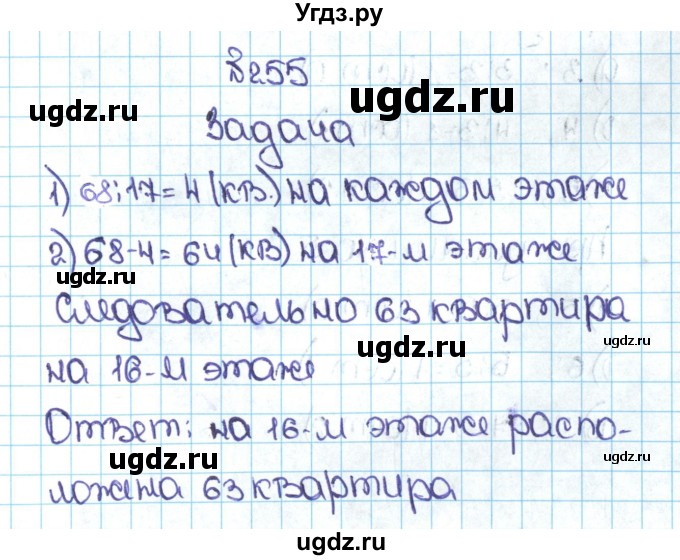 Угдз.ру
№255
ugdz.ru
ugdz.ru
Задача
1) 68:17=4 (кв.) на каждом этаже
2) 68-4=64 (кв) на 17-м этаже
ugdz.ru
ugdz.ru
Следовательно 63 квартира
ugdz.ru
ugdz.ru
на 16-м этаже
Ответ: на 16-м этаже распо-
ugdz.ru
ugdz.ru
ложена 63 квартира
ugdz.ru